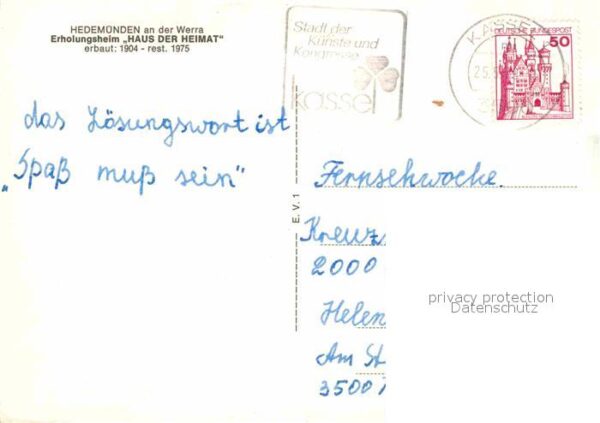 HEDEMÜNDEN an der Werra
Erholungsheim „HAUS DER HEIMAT“
erbaut: 1904 - rest. 1975
Stadt der
Künste und
Kongresse
kassel
KASSEL
25.
DEUTSCHE BUNDESPOST
50
das Lösungswort ist
„Spaß muß sein“
E. V. 1
Fernsehwoche
Kreuz
2000
Helen
Am St
3500
privacy protection
Datenschutz